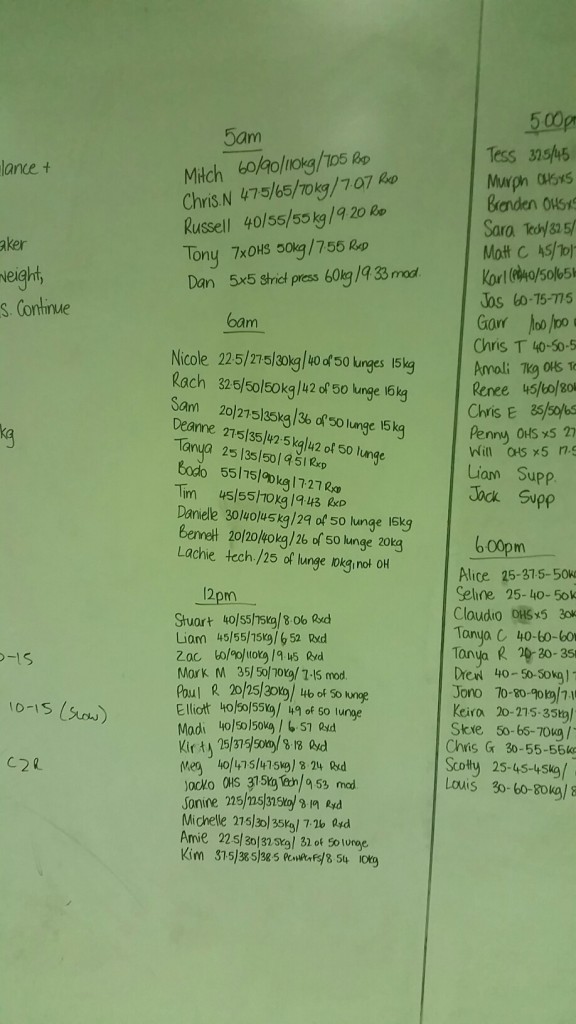 lance +
aker
weight,
s. Continue
kg
0-15
10-15 (slow)
C2R
5am
Mitch 60/90/110kg/7.05 Rxd
Chris.N 47.5/65/70kg/7.07 Rxd
Russell 40/55/55kg/9.20 Rxd
Tony 7xOHS 50kg/7.55 Rxd
Dan 5x5 strict press 60kg/9.33 mod.
6am
Nicole 22.5/27.5/30kg/40 of 50 lunges 15kg
Rach 32.5/50/50kg/42 of 50 lunge 15kg
Sam 20/27.5/35kg/36 of 50 lunge 15kg
Deanne 27.5/35/42.5kg/42 of 50 lunge
Tanya 25/35/50/9.51 Rxd
Bodo 55/75/90kg/7.27 Rxd
Tim 45/55/70kg/9.43 Rxd
Danielle 30/40/45kg/29 of 50 lunge 15kg
Bennett 20/20/40kg/26 of 50 lunge 20kg
Lachie tech./25 of lunge 10kg, not OH
12pm
Stuart 40/55/75kg/8.06 Rxd
Liam 45/55/75kg/6.52 Rxd
Zac 60/90/110kg/9.45 Rxd
Mark M 35/50/70kg/7.15 mod.
Paul R 20/25/30kg/46 of 50 lunge
Elliott 40/50/55kg/49 of 50 lunge
Madi 40/50/50kg/6.57 Rxd
Kirsty 25/37.5/50kg/8.18 Rxd
Meg 40/47.5/47.5kg/8.24 Rxd
Jacko OHS 37.5kg Tech/9.53 mod
Janine 22.5/22.5/32.5kg/8.19 Rxd
Michelle 27.5/30/35kg/7.26 Rxd
Amie 22.5/30/32.5kg/32 of 50 lunge
Kim 37.5/38.5/38.5 /8.54 10kg
5.00pm
Tess 32.5/45
Murph OHSx5
Brenden OHSx5
Sara Tech/32.5/
Matt C 45/70/
Karl 40/50/65k
Jas 60-75-77.5
Garr 100/100
Chris T 40-50-5
Amali 7kg OHS Te
Renee 45/60/80k
Chris E 35/50/65
Penny OHS x5 27
Will OHS x5 17.5
Liam Supp.
Jack Supp
6.00pm
Alice 25-37.5-50k
Seline 25-40-50k
Claudio OHSx5 30k
Tanya C 40-60-60
Tanya R 20-30-35
Drew 40-50-50kg/
Jono 70-80-90kg/7.1
Keira 20-27.5-35kg/
Steve 50-65-70kg/
Chris G 30-55-55k
Scotty 25-45-45kg/
Louis 30-60-80kg/8